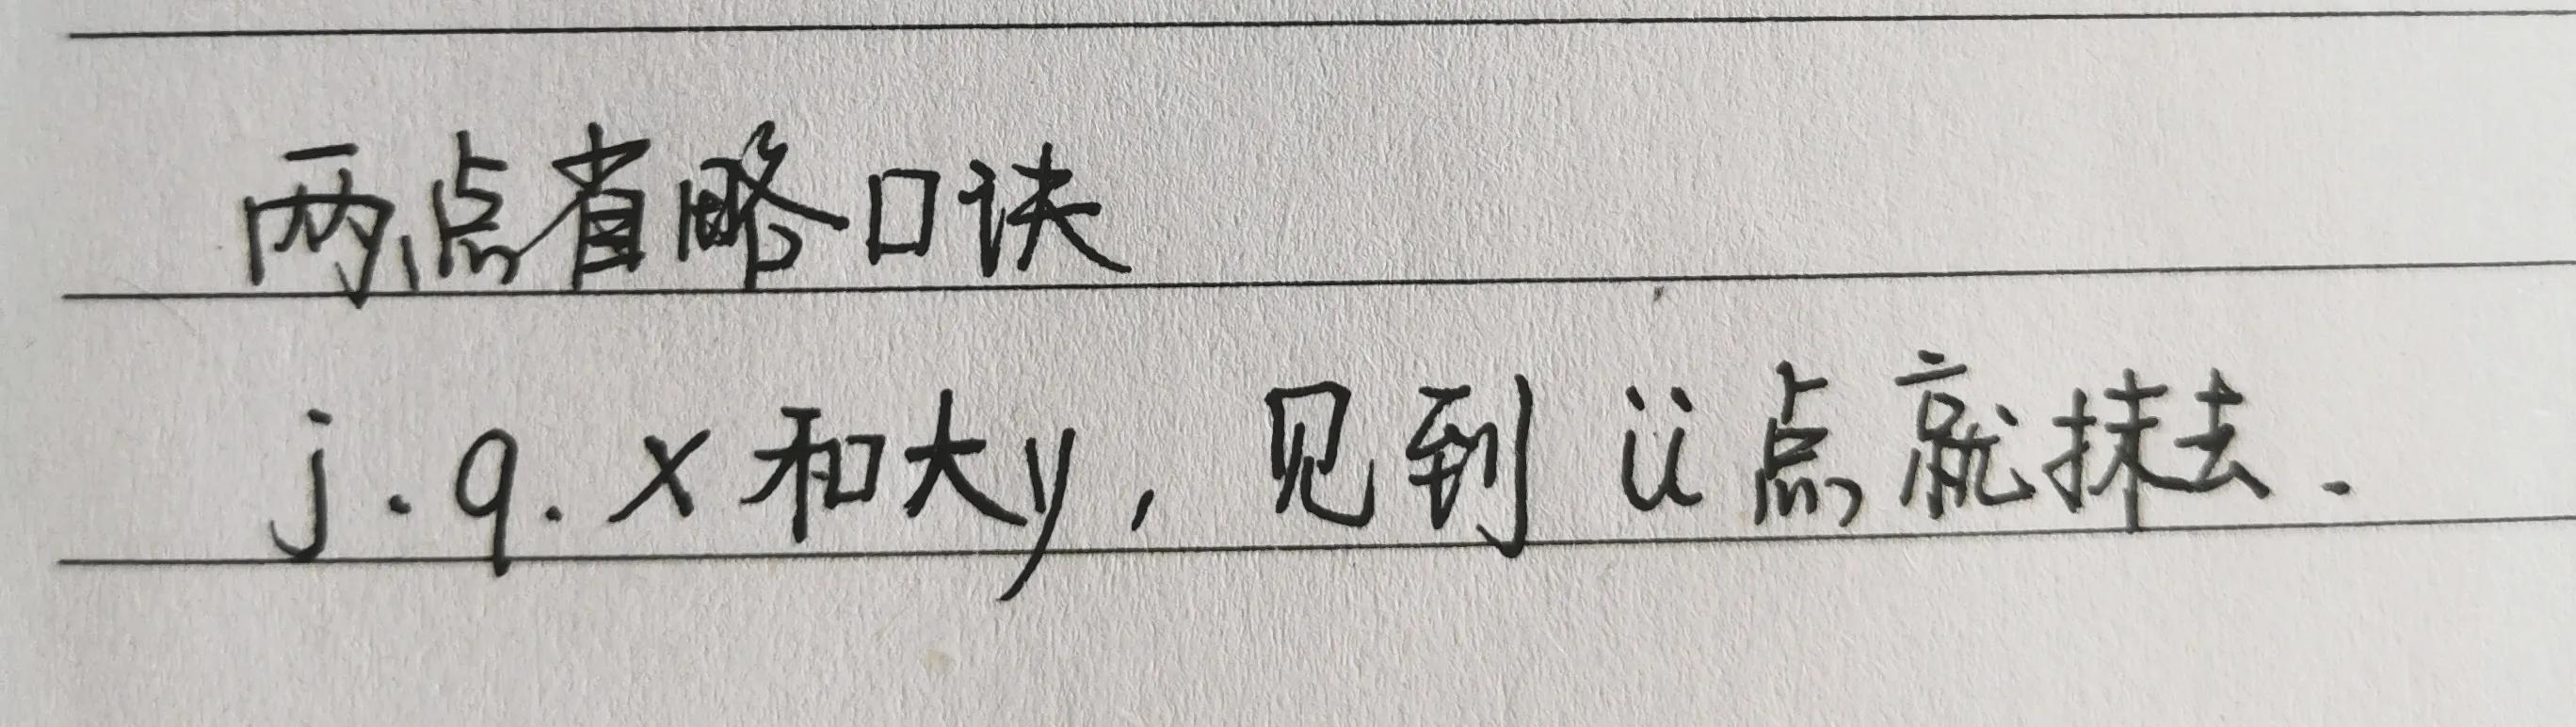 两点省略口诀
j.q.x和大y,见到ü点就抹去.